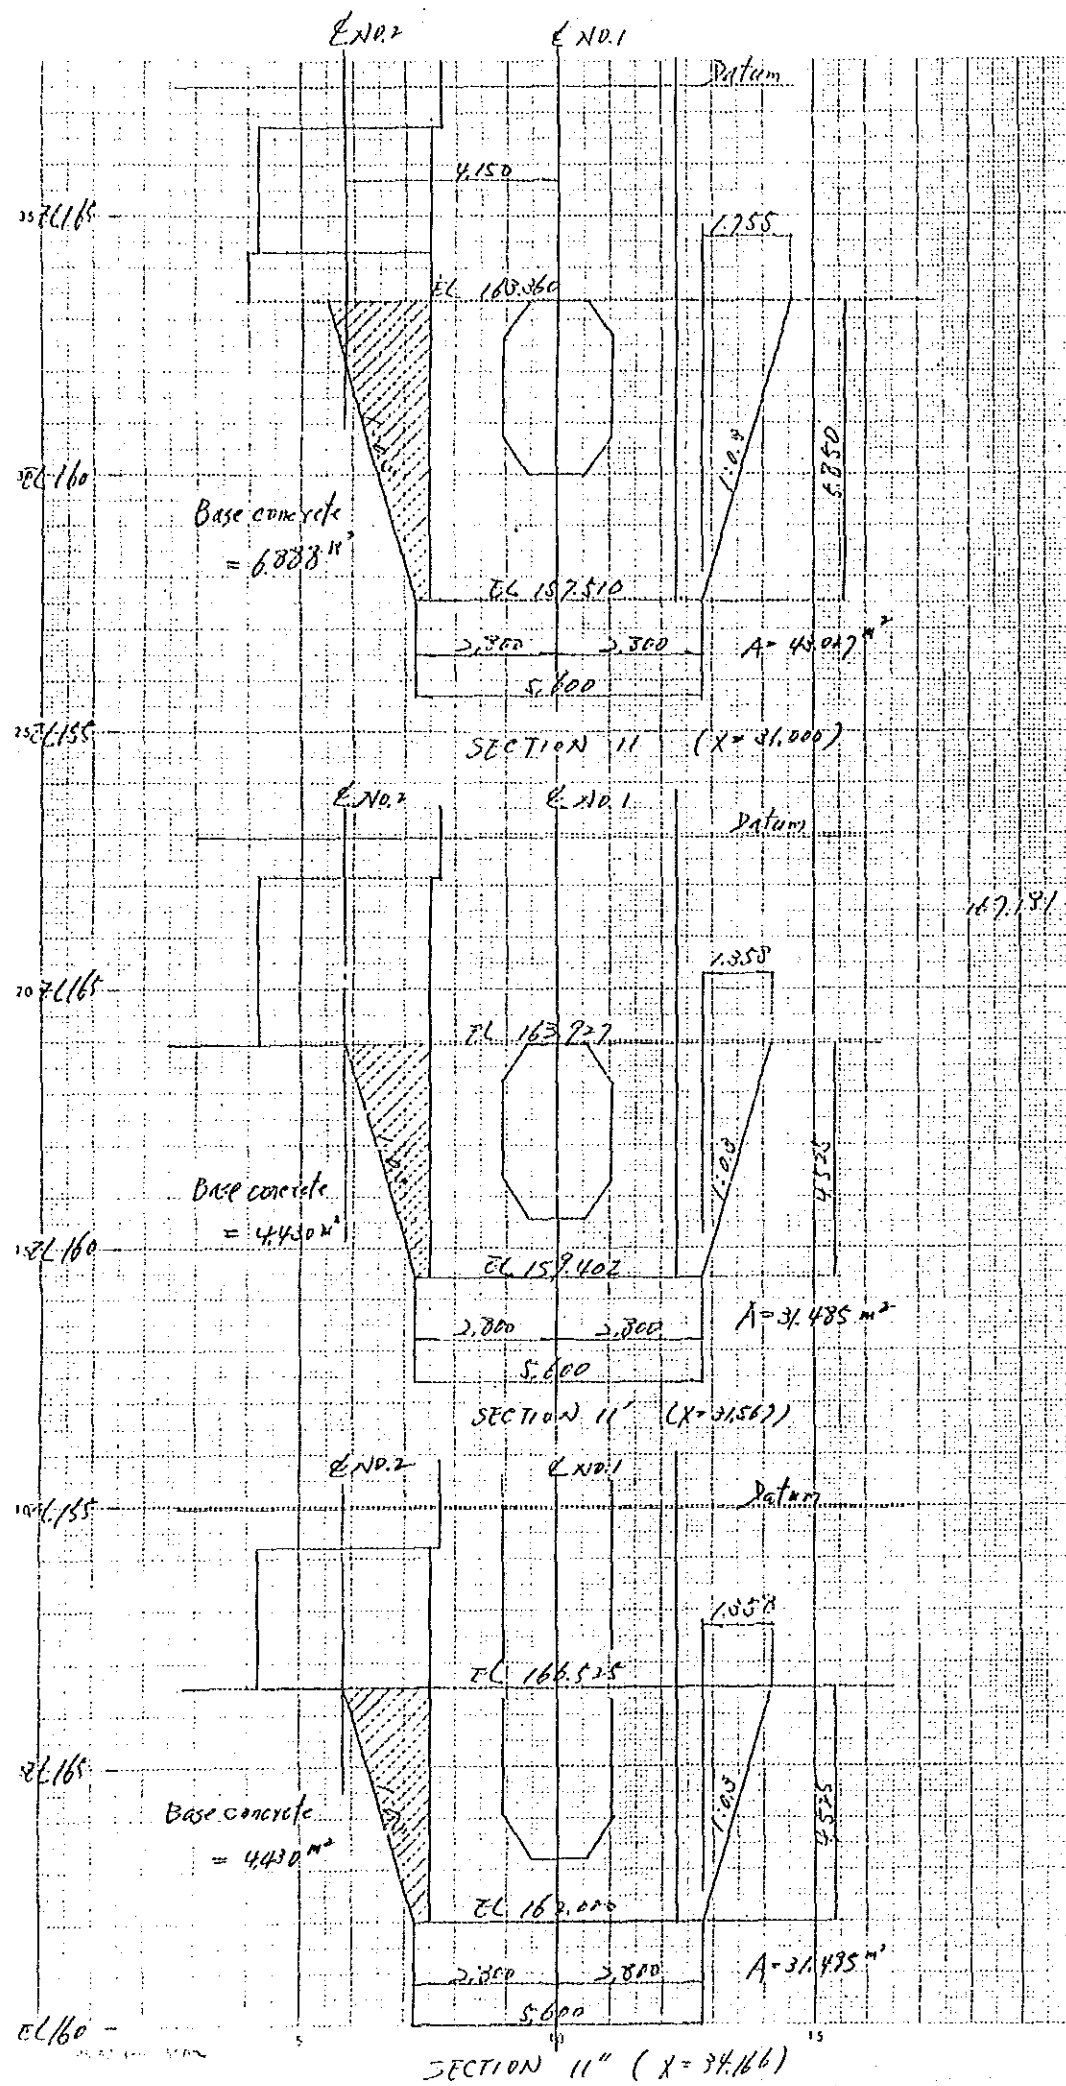 ℄ NO.2 ℄ NO.1
Datum
4,150
35 EL165
1.755
EL 163.360
1:0.3
5.850
EL160
Base concrete
= 6.888 m²
EL 157.510
2,800 2,800
A= 43.027 m²
5,600
25 EL155
SECTION 11 (X= 31.000)
℄ NO.2 ℄ NO.1
Datum
167.191
1.358
20 EL165
EL 163.927
1:0.3
4.525
Base concrete
= 4.430 m²
15 EL160
EL 159.402
2,800 2,800
A=31.485 m²
5,600
SECTION 11' (X=31.567)
℄ NO.2 ℄ NO.1
10 EL155
Datum
1.358
EL 166.525
EL165
1:0.3
4.525
Base concrete
= 4.430 m²
EL 162.000
2,800 2,800
A=31.485 m²
5,600
EL160
5 10 15
SECTION 11" (X= 34.166)